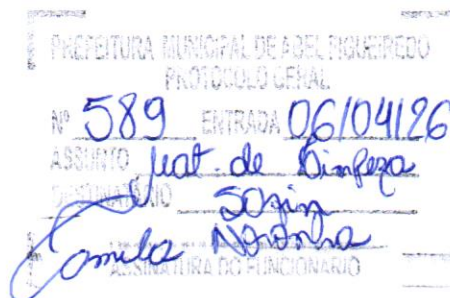 PREFEITURA MUNICIPAL DE ABEL FIGUEIREDO
PROTOCOLO GERAL
Nº 589 ENTRADA 06/04/26
ASSUNTO Mat. de Limpeza
DESTINATÁRIO
Camila Noronha
ASSINATURA DO FUNCIONÁRIO